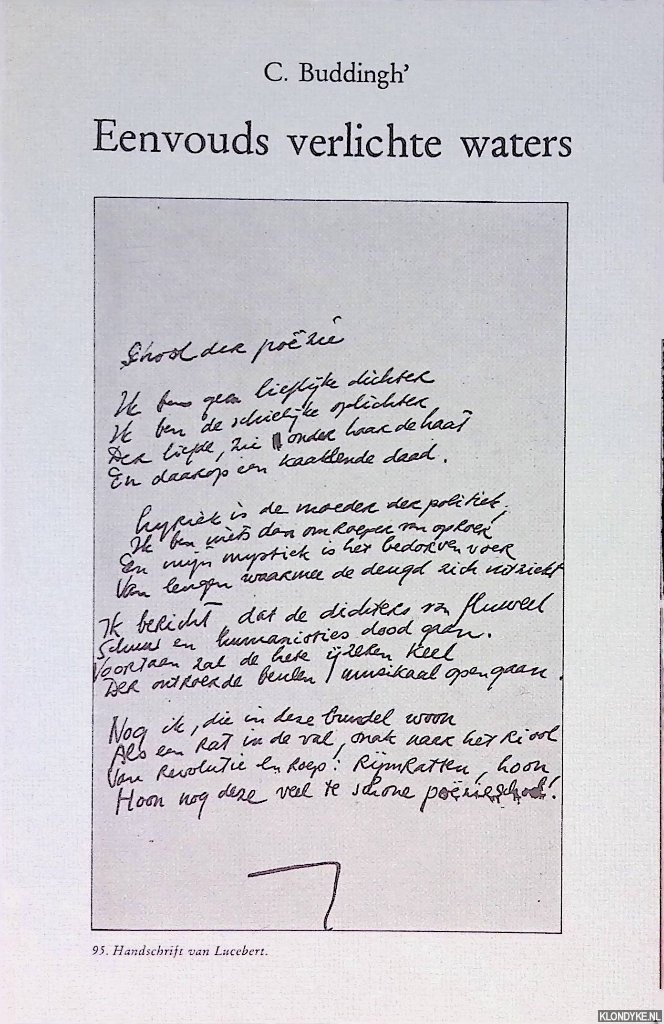 C. Buddingh'
Eenvouds verlichte waters
School der poëzie
Ik ben geen lieflijke dichter
Ik ben de schielijke oplichter
Der liefde, zie onder haar de haat
En daarop een kaaklende daad.
Lyriek is de moeder der politiek,
Ik ben niets dan omroeper van oproer
En mijn mystiek is het bedorven voer
Van leugen waarmee de deugd zich uitziekt
Ik bericht dat de dichters van fluweel
Schuw en humanisties dood gaan.
Voortaan zal de hete ijzeren keel
Der ontroerde beulen muzikaal opengaan.
Nog ik, die in deze bundel woon
Als een rat in de val, snak naar het riool
Van revolutie en roep: rijmratten, hoon
Hoon nog deze veel te schone poëzieschool!
95. Handschrift van Lucebert.
KLONDYKE.NL